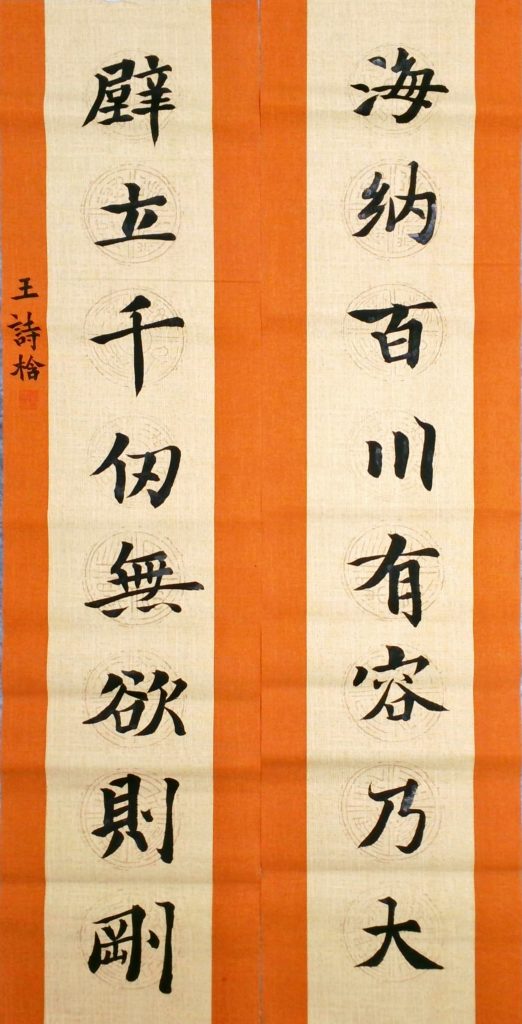 海納百川有容乃大
壁立千仞無欲則剛
王詩桧